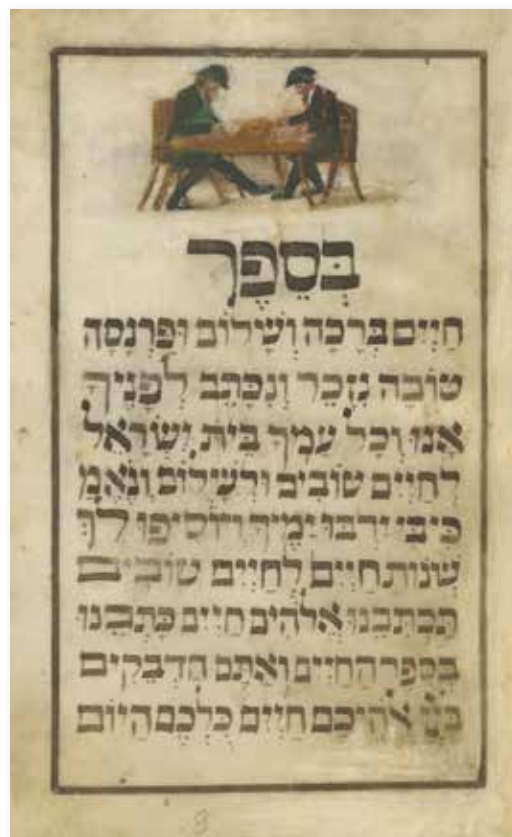 בְּסֵפֶר
חַיִּים בְּרָכָה וְשָׁלוֹם וּפַרְנָסָה
טוֹבָה נִזָּכֵר וְנִכָּתֵב לְפָנֶיךָ
אָנוּ וְכָל עַמְּךָ בֵּית יִשְׂרָאֵל
לְחַיִּים טוֹבִים וּלְשָׁלוֹם וְנֶאֱמַ
כִּי בִי יִרְבּוּ יָמֶיךָ וְיוֹסִיפוּ לְךָ
שְׁנוֹת חַיִּים לְחַיִּים טוֹבִים
תִּכְתְּבֵנוּ אֱלֹהִים חַיִּים כָּתְבֵנוּ
בְּסֵפֶר הַחַיִּים וְאַתֶּם הַדְּבֵקִים
אֱלֹהֵיכֶם חַיִּים כֻּלְּכֶם הַיּוֹם
8